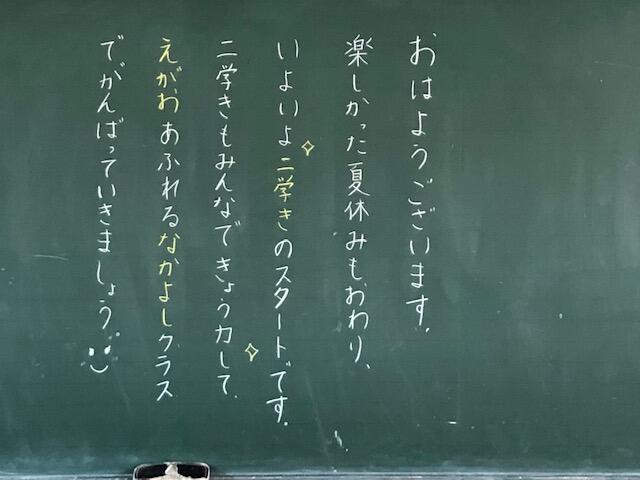 おはようございます。
楽しかった夏休みもおわり、
いよいよ二学きのスタートです。
二学きもみんなできょう力して、
えがおあふれるなかよしクラス
でがんばっていきましょう。